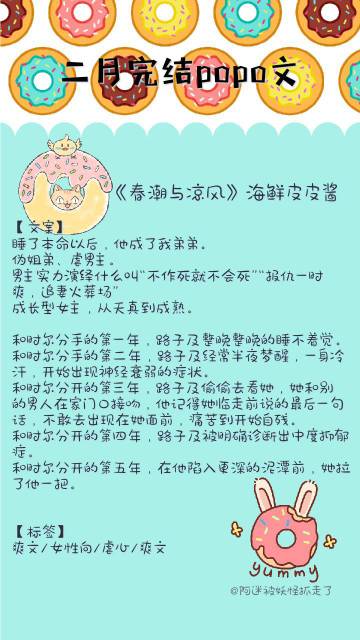 二月完结popo文
《春潮与凉风》海鲜皮皮酱
【文案】
睡了本命以后，他成了我弟弟。
伪姐弟、虐男主。
男主实力演绎什么叫“不作死就不会死”“报仇一时
爽，追妻火葬场”
成长型女主，从天真到成熟。
和时尔分手的第一年，路子及整晚整晚的睡不着觉。
和时尔分手的第二年，路子及经常半夜梦醒，一身冷
汗，开始出现神经衰弱的症状。
和时尔分开的第三年，路子及偷偷去看她，她和别
的男人在家门口接吻，他记得她临走前说的最后一句
话，不敢去出现在她面前，痛苦到开始自残。
和时尔分开的第四年，路子及被明确诊断出中度抑郁
症。
和时尔分开的第五年，在他陷入更深的泥潭前，她拉
了他一把。
【标签】
爽文/女性向/虐心/爽文
yummy
@阿迷被妖怪抓走了